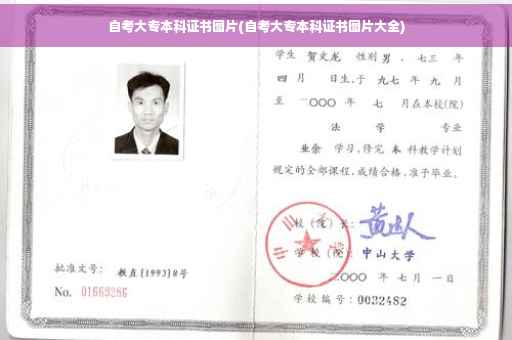 自考大专本科证书图片(自考大专本科证书图片大全)
学生 贺文龙 性别 男 、七三 年
四 月 日生,于 九七 年 九 月
至 二〇〇〇 年 七 月在本校(院)
法 学 专业
业余 学习,修完 本 科教学计划
规定的全部课程,成绩合格,准予毕业。
校(院)长:
学校(院): 中山大学
二〇〇〇 年 七 月 一 日
学校编号: 0032482
批准文号: 教直[1993]8号
No. 01669286